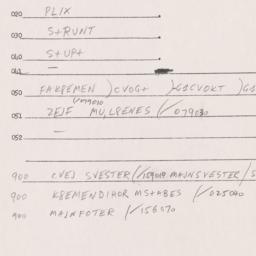 020 PLIX
030 STRUNT
040 STUPT
041 —
050 FAKREMEN )CVOGT )G1CVOKT )G1
051 ZEJF MULRENES /079030
052 —
900 CVEJ SVESTER (/159019 MAJNSVESTER /S
900 KREMENDIHOR MSTABES /025040
900 MAJNFOTER /156070